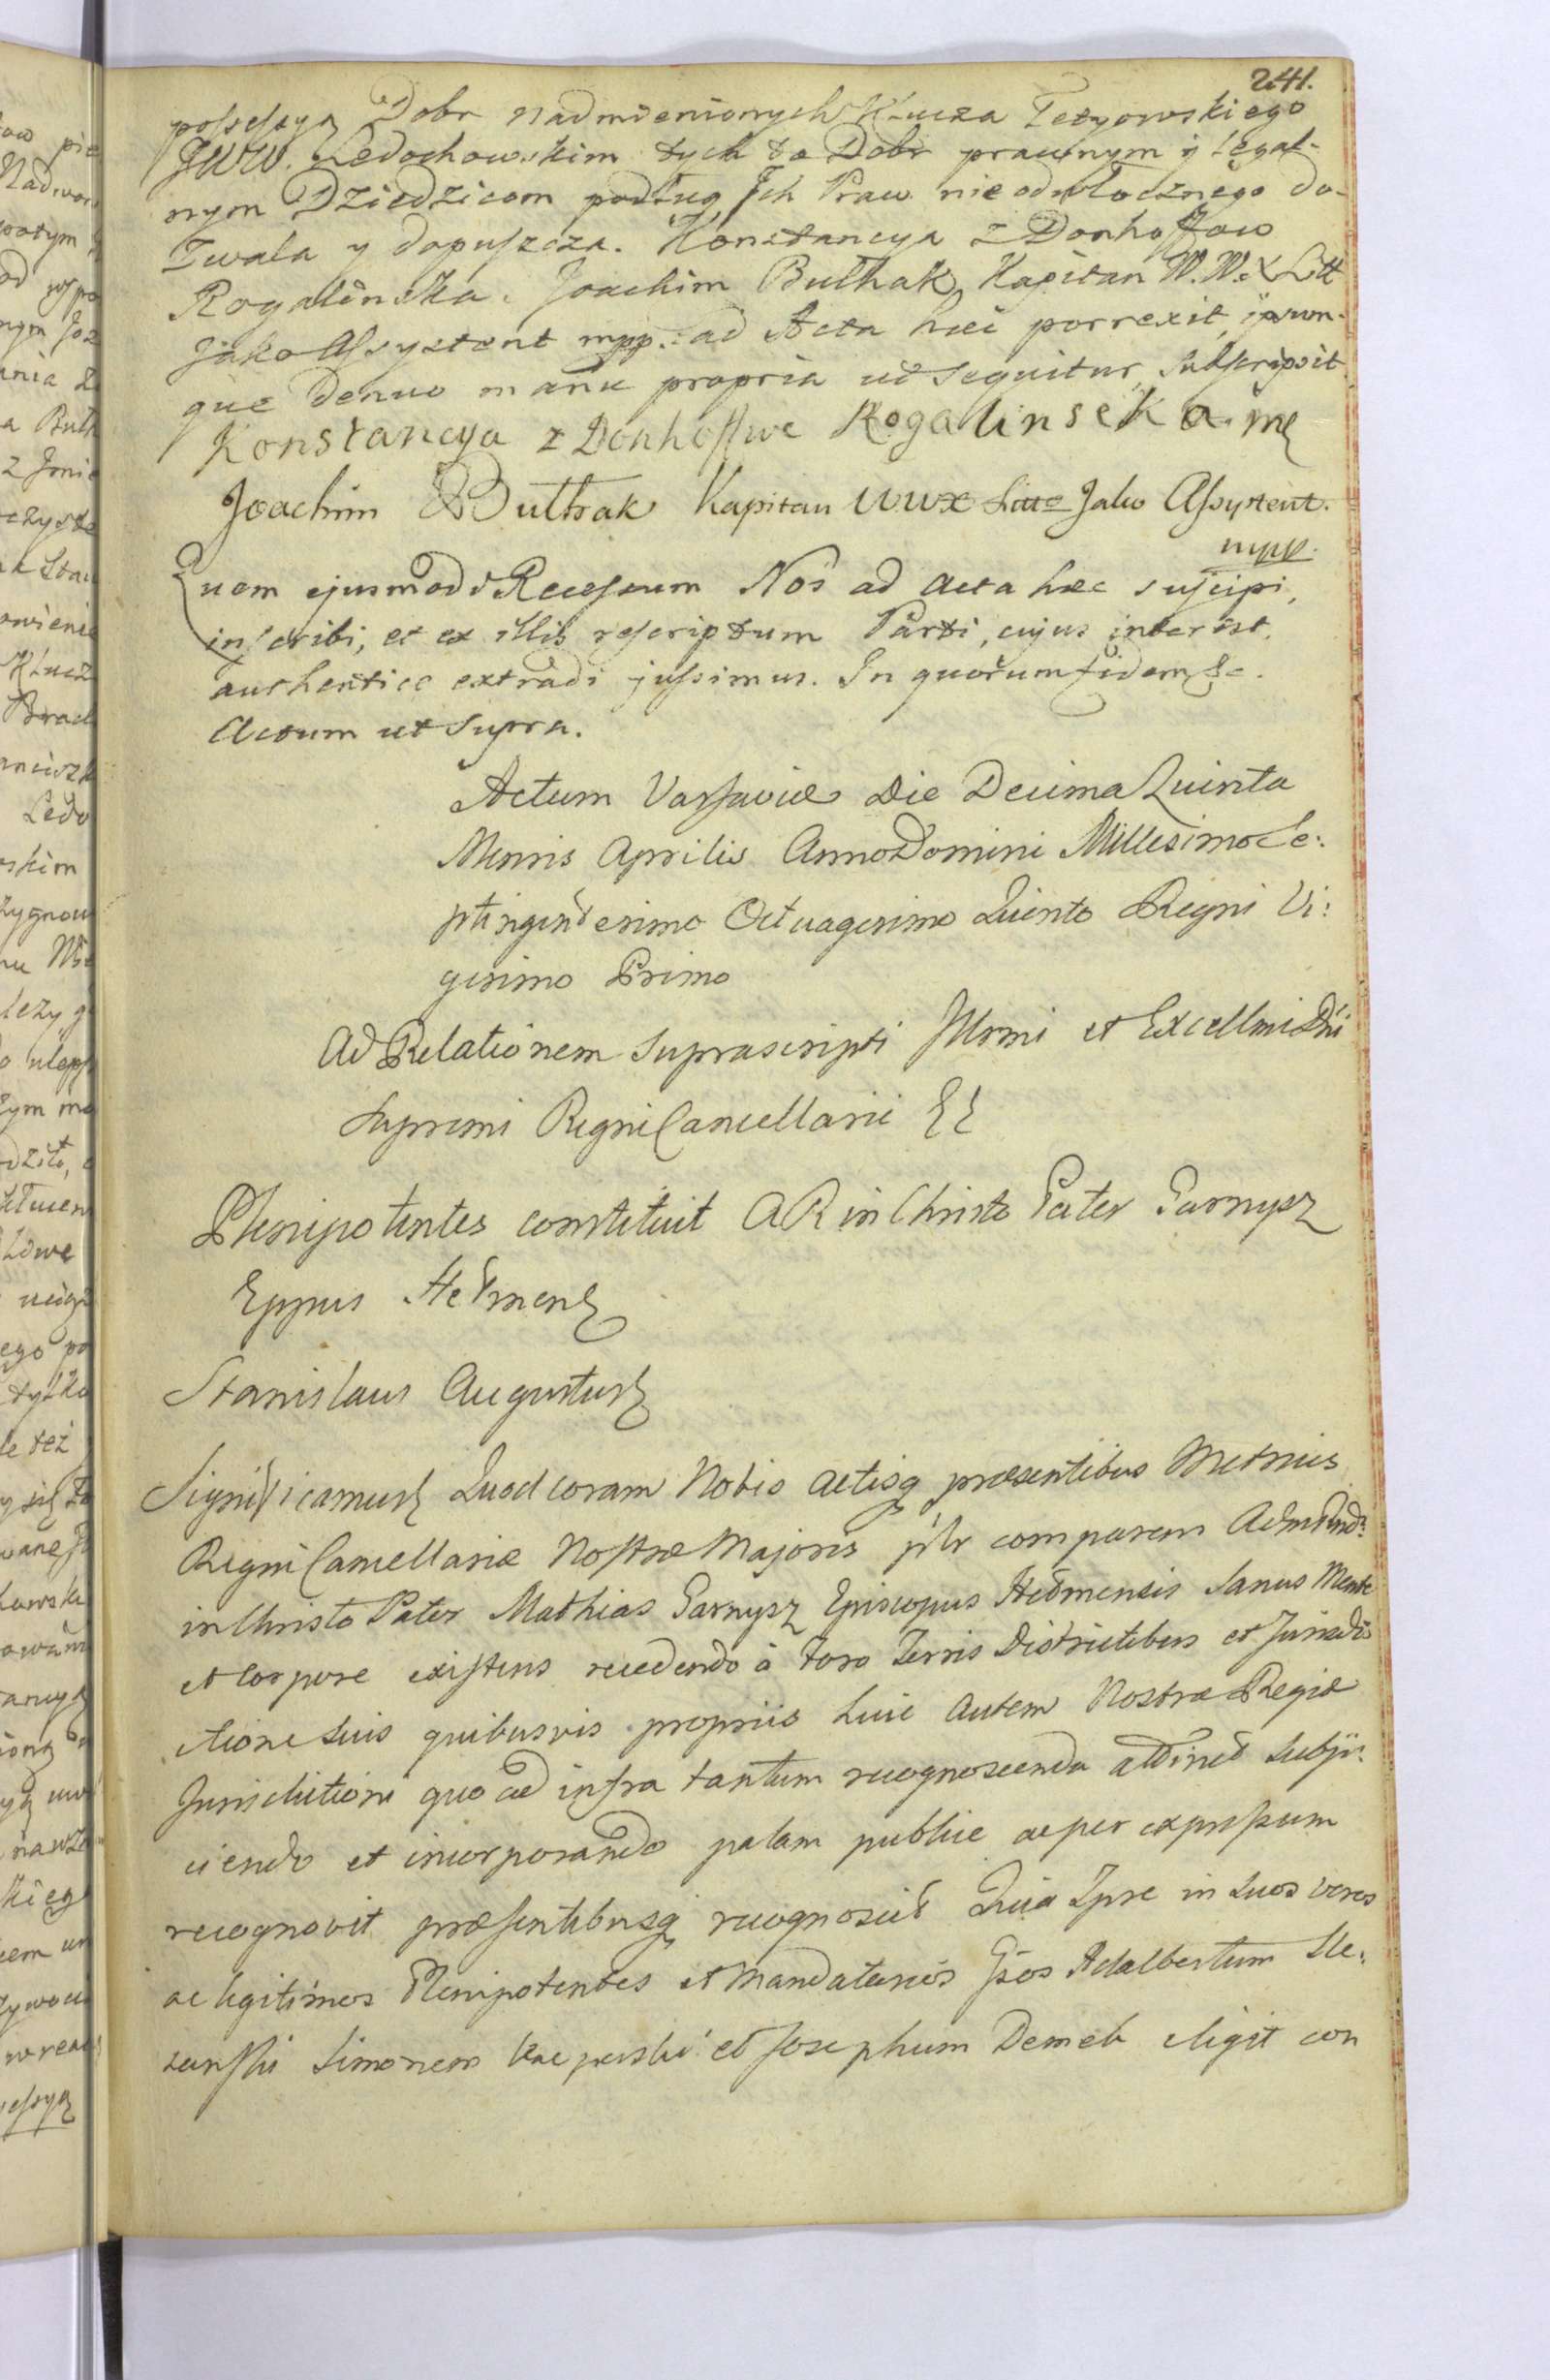 241.
possessyą Dobr nadmienionych Klucza Tetyowskiego
JWW. Ledochowskim tych to Dobr prawnym y Legal-
nym Dziedzicom podług Ich Praw nieodwłocznego do-
zwala y dopuszcza. Konstancya z Donhoffow
Rogalinska. Joachim Bułhak, Kapitan W. W. X Litt
Jako Assystent mpp. ad Acta haec porrexit, ipsum-
que denuo manu propria ut sequitur subscripsit
Konstancya z Donhoffwe Rogalinseka mę
Joachim Bułhak Kapitan WWX Litt Jako Assystent.
mpp.
Quem ejusmodi Recessum Nos ad acta haec suscipi,
inscribi, et ex illis rescriptum Parti, cujus interest,
authentice extradi jussimus. In quorum fidem &c.
Actum ut supra.
Actum Varsaviae Die Decima Quinta
Mensis Aprilis Anno Domini Millesimo Se:
ptingentesimo Octuagesimo Quinto Regni Vi:
gesimo Primo
Ad Relationem Suprascripti Illrmi et Excellmi Dni
Supremi Regni Cancellarii
Plenipotentes constituit AR in Christo Pater Garnysz
Eppus Hełmen
Stanislaus Augustus
Significamus Quod coram Nobis Actisq praesentibus Metrices
Regni Cancellariae Nostrae Majoris plr comparens Adm Rnd9
in Christo Pater Mathias Garnysz Episcopus Hełmensis Sanus Mente
et Corpore existens recedendo à foro Terris Districtibus et Jurisdi
ctione suis quibusvis propriis huic autem Nostrae Regiae
Jurisdictioni quo ad infra tantum recognoscenda attinet subji:
ciendo et incorporando palam publice ac per expressum
recognovit praesentibusq recognoscit Quia Ipse in suos veros
ac legitimos Plenipotentes et Mandatarios Gsos Adalbertum
Simonem et Josephum Demeb eligit con